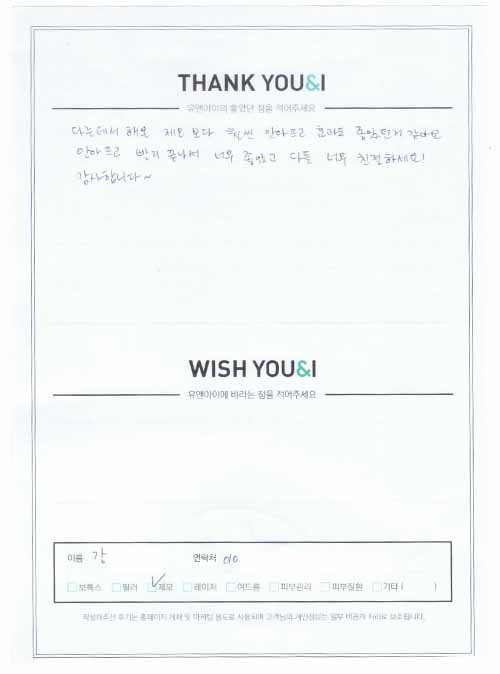 THANK YOU&I
유앤아이의 좋았던 점을 적어주세요
다른데서 해온 제모 보다 훨씬 안아프고 효과도 좋았던거 같아요
안아프고 빨리 끝나서 너무 좋았고 다들 너무 친절하세요!
감사합니다~
WISH YOU&I
유앤아이에 바라는 점을 적어주세요
이름 강 연락처 010
보톡스 필러 제모 레이저 여드름 피부관리 피부질환 기타 ( )
작성해주신 후기는 홈페이지 게재 및 마케팅 용도로 사용되며 고객님의 개인정보는 일부 비공개 처리로 보호됩니다.